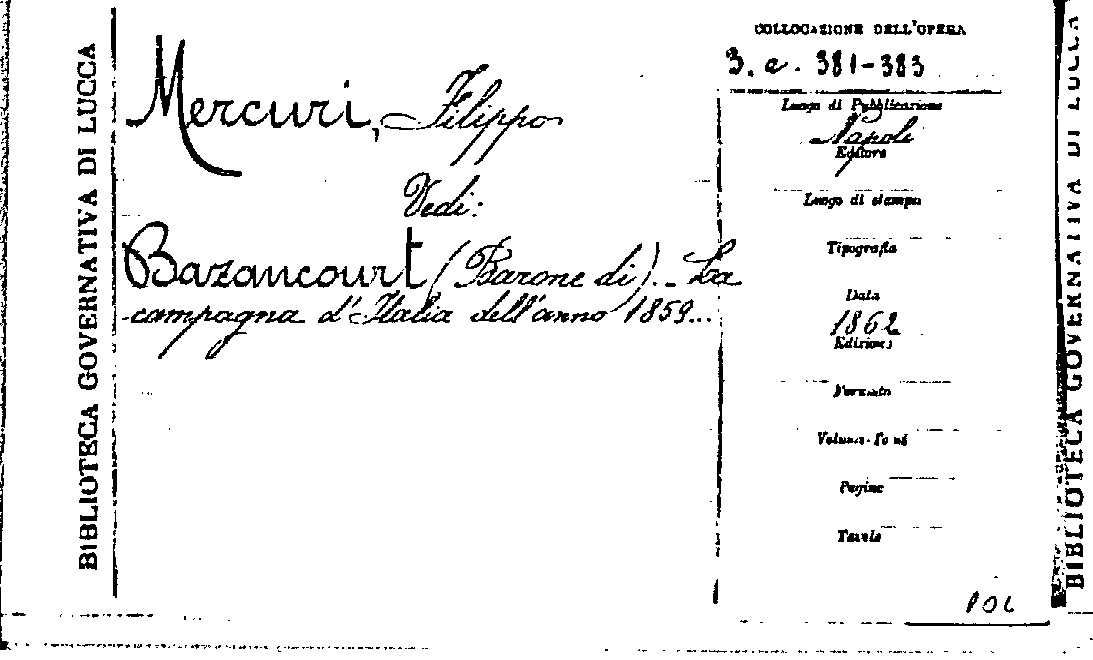 BIBLIOTECA GOVERNATIVA DI LUCCA
Mercuri, Filippo
Vedi:
Bazancourt (Barone di). - La
campagna d'Italia dell'anno 1859...
COLLOCAZIONE DELL'OPERA
3. a. 381-383
Luogo di Pubblicazione
Napoli
Editore
Luogo di stampa
Tipografia
Data
1862
Edizione
Formato
Pagine
Tavole
POL
BIBLIOTECA GOVERNATIVA DI LUCCA